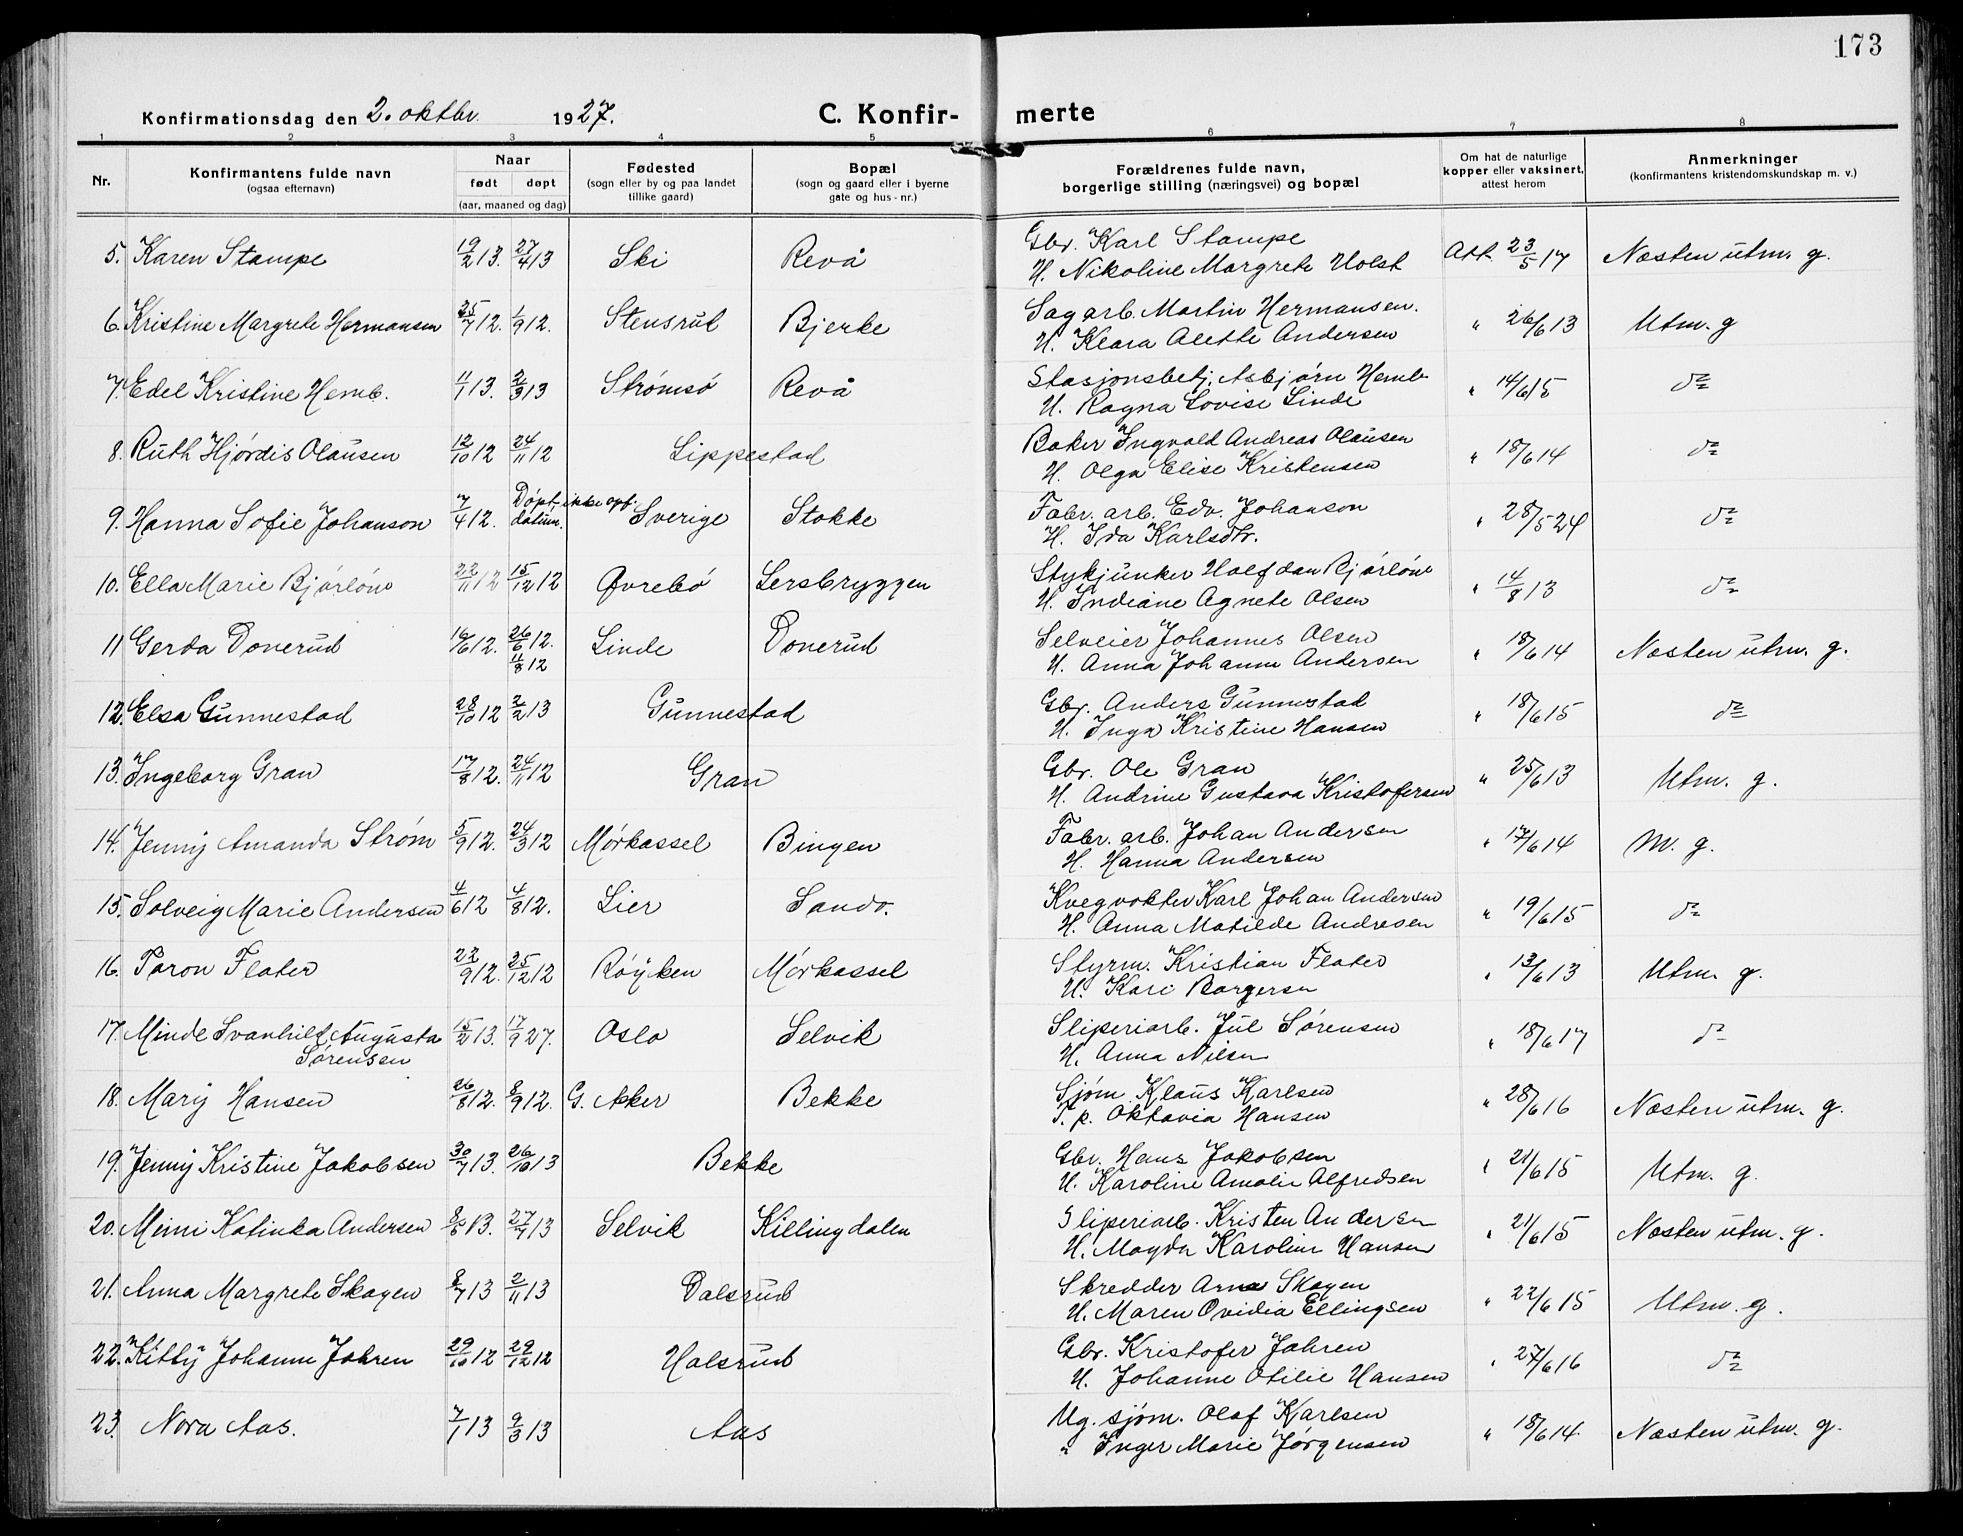 173
Konfirmationsdag den 2. oktbr. 1927. C. Konfir- merte
1 2 3 4 5 6 7 8
Nr. Konfirmantens fulde navn (ogsaa efternavn) Naar født døpt (aar, maaned og dag) Fødested (sogn eller by og paa landet tillike gaard) Bopæl (sogn og gaard eller i byerne gate og hus-nr.) Forældrenes fulde navn, borgerlige stilling (næringsvei) og bopæl Om hat de naturlige kopper eller vaksinert, attest herom Anmerkninger (konfirmantens kristendomskundskap m. v.)
5. Karen Stampe 19/2 13. 27/4 13 Ski Revå Gbr. Karl Stampe Att. 23/5 17 Næsten utm. g.
H. Nikoline Margrete Holst
6. Kristine Margrete Hermansen 25/7 12. 1/9 12. Stensrud Bjerke Sagarb. Martin Hermansen. " 26/6 13 Utm. g
H. Klara Alette Andersen
7. Edel Kristine Hemb. 11/1 13. 2/3 13 Strømsø Revå Stasjonsbetj. Asbjørn Hemb " 14/6 15 do
H. Ragna Lovise Linde
8. Ruth Hjørdis Olausen 12/10 12 24/11 12 Lippestad Baker Ingvald Andreas Olausen " 18/6 14 do
H. Olga Elise Kristensen
9. Hanna Sofie Johanson 7/4 12. Døpt ikke opf. datum. Sverige Stokke Fabr. arb. Edv. Johanson " 28/5 24 do
H. Ida Karlsdtr.
10. Ella Marie Bjørløw 22/11 12 15/12 12 Øvrebö Lersbryggen Stykjunker Halfdan Bjørløw " 14/8 13 do
H. Indiane Agnete Olsen
11 Gerda Donerud 16/6 12. 26/6 12. 11/8 12 Linde Donerud Selveier Johannes Olsen " 18/6 14 Næsten utm. g.
H. Anna Johanne Andersen
12. Elsa Gunnestad 28/10 12 2/2 13 Gunnestad Gbr. Anders Gunnestad " 18/6 15 do
H. Inga Kristine Hansen
13. Ingeborg Gran 17/8 12. 24/11 12 Gran Gbr. Ole Gran " 25/6 13 Utm. g.
H. Andrine Gustava Kristofersen
14. Jenny Amanda Strøm 5/9 12. 24/3 12 Mørkassel Bingen Fabr. arb. Johan Andersen " 17/6 14 M. g.
H. Hanna Andersen
15. Solveig Marie Andersen 4/6 12 4/8 12. Lier Sando. Kvegvokter Karl Johan Andersen " 19/6 15 do
H. Anna Matilde Andresen
16. Toron Flater 22/9 12. 25/12 12 Røyken Mörkassel Styrm. Kristian Flater " 13/6 13 Utm. g.
H. Kari Borgersen
17. Minde Svanhild Augusta 15/2 13. 17/9 27. Oslo Selvik Sliperiarb. Jul Sørensen " 18/6 17 do
Sørensen H. Anna Nilsen
18. Mary Hansen 26/8 12. 8/9 12. G. Aker Bekke Sjøm. Klaus Karlsen " 28/6 16 Næsten utm. g.
T. p. Oktavia Hansen
19. Jenny Kristine Jakobsen 30/7 13. 26/10 13 Bekke Gbr. Hans Jakobsen " 21/6 15 Utm. g.
H. Karoline Amalie Alfredsen
20. Mimi Katinka Andersen 8/5 13. 27/7 13 Selvik Killingdalen Sliperiarb. Kristen Andersen " 21/6 15 Næsten utm. g.
H. Magda Karoline Hansen
21. Anna Margrete Skogen 8/7 13 2/11 13 Dalsrud Skredder Arne Skogen " 22/6 15 Utm. g.
H. Maren Ovidia Ellingsen
22. Kitty Johanne Jahren 29/10 12 29/12 12 Halsrud Gbr. Kristofer Jahren " 27/6 16 do
H. Johanne Otilie Hansen
23. Nora Aas. 7/1 13 9/3 13 Aas Ug. sjøm. Olaf Karlsen " 18/6 14. Næsten utm. g.
" Inger Marie Jørgensen